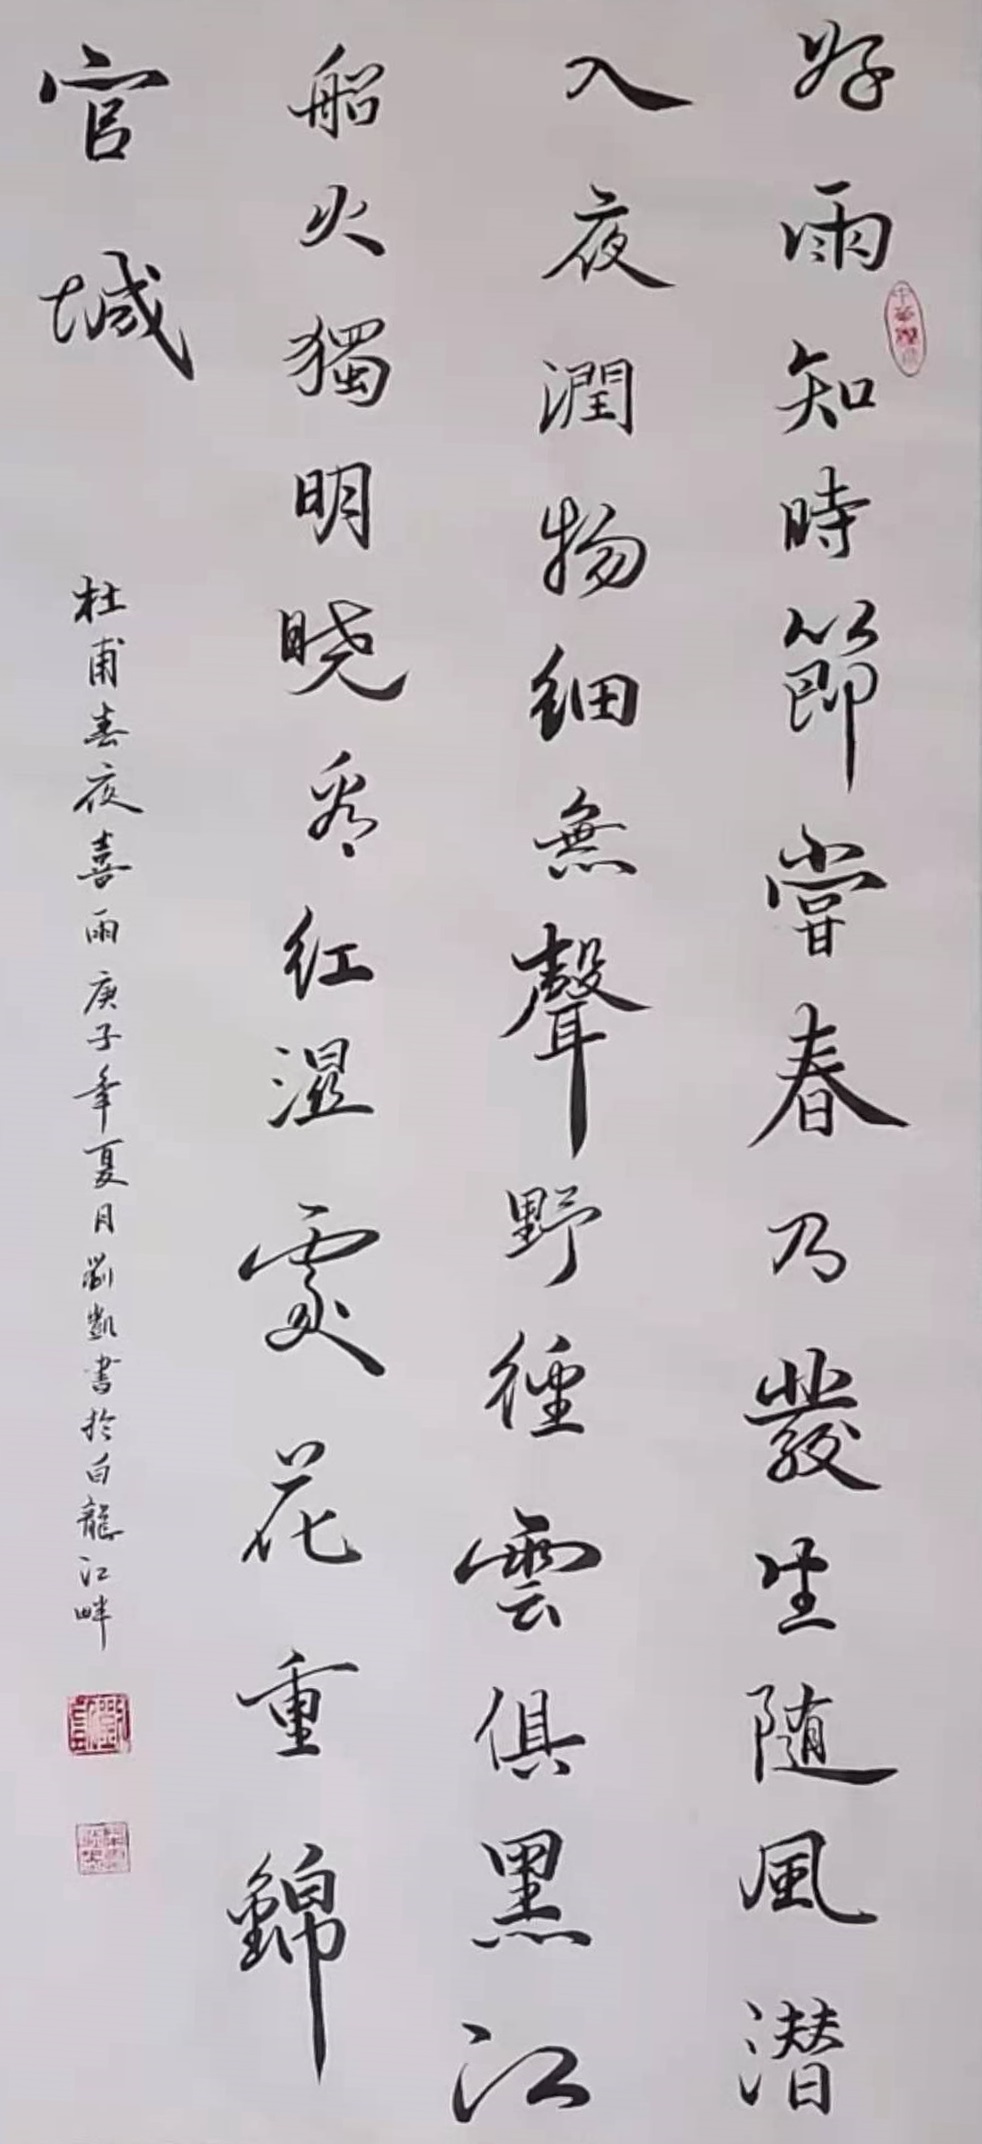 好雨知時節當春乃發生随風潜
入夜潤物细無聲野徑雲俱黑江
船火獨明晓看红濕處花重錦
官城
杜甫春夜喜雨庚子年夏月劉凱書於白龍江畔